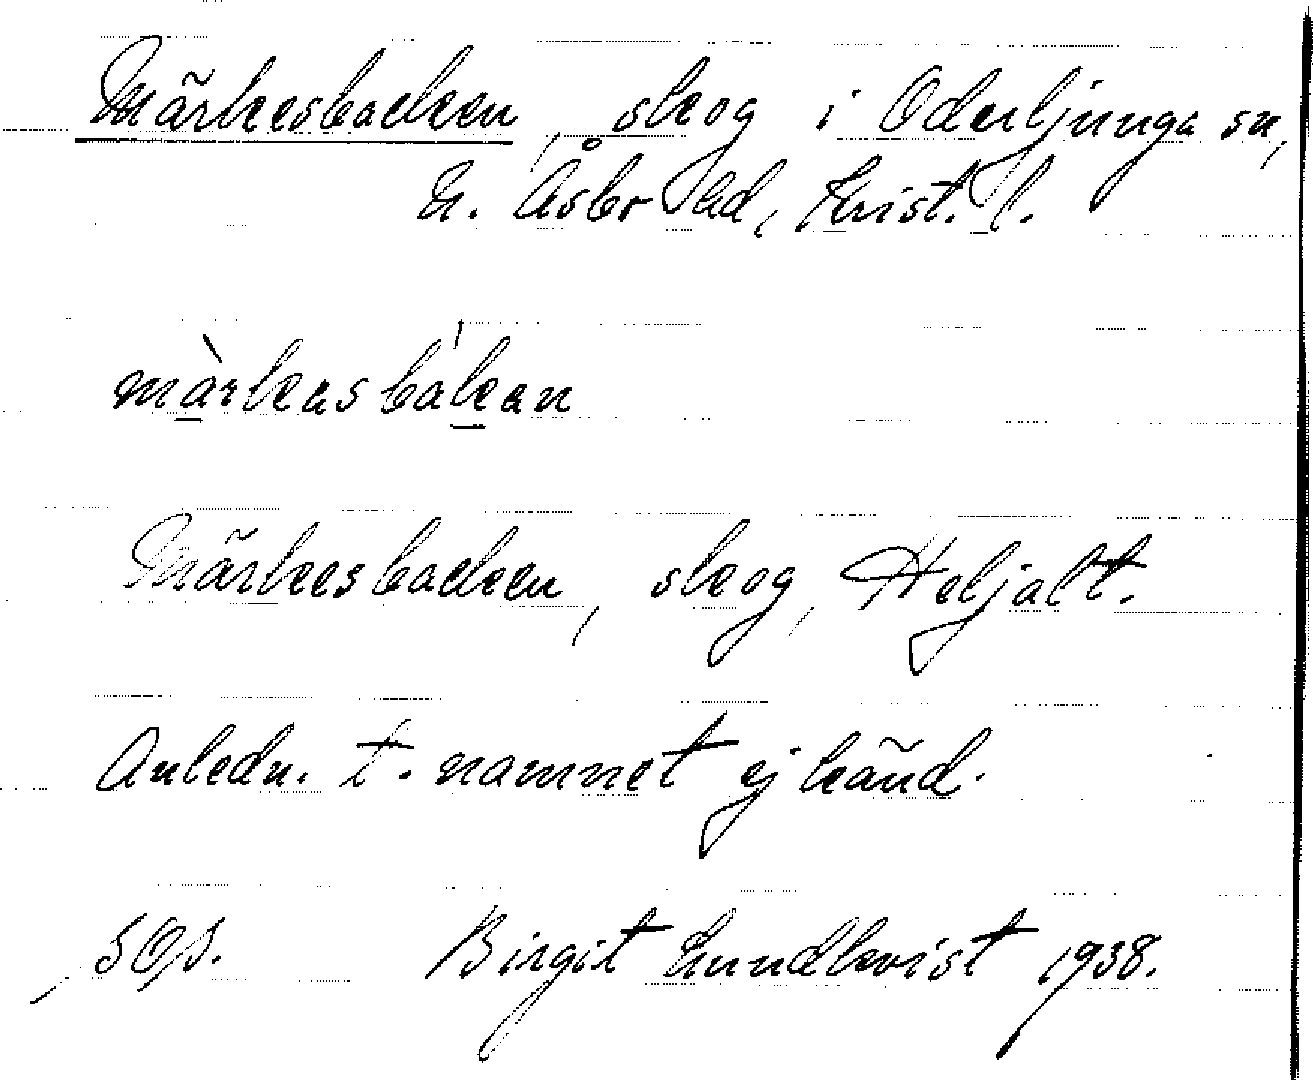 Märkesbacken, skog i Oderljunga sn,
N. Åsbo hd, Krist. l.
màrkasbákan
Märkesbacken, skog, Heljalt.
Anledn. t. namnet ej känd.
SOJ. Birgit Lundkvist 1938.